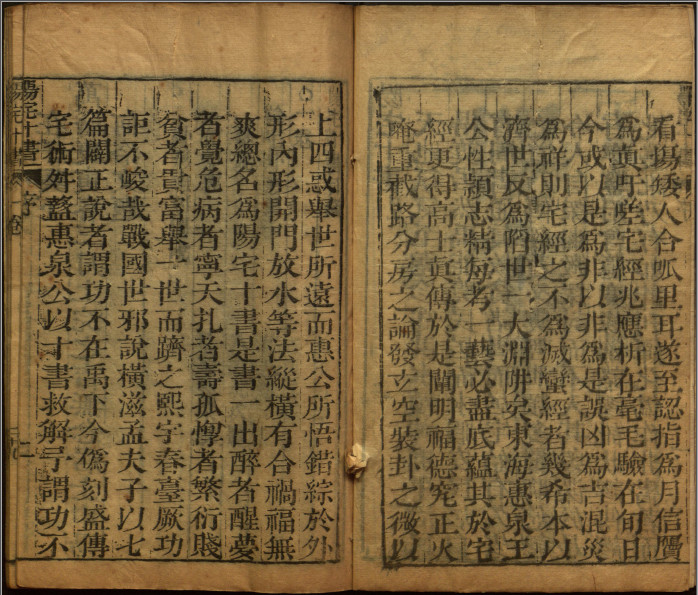 看場矮人合呱里耳遂至認指爲月信贋
爲眞吁𡵆宅經兆應析在毫毛驗在旬日
今或以是爲非以非爲是誤凶爲吉混災
爲祥則宅經之不爲滅蠻經者幾希本以
濟世反爲陷世一大淵阱矣東海惠泉王
公性穎志精每考一藝必盡底蘊其於宅
經更得高士眞傳於是闡明福德究正火
重截路分房之論發立空裝卦之微以
上四惑舉世所遠而惠公所悟錯綜於外
形內形開門放水等法縱橫有合禍福無
爽總名爲陽宅十書是書一出醉者醒夢
者覺危病者寧夭札者壽孤惸者繁衍賤
貧者貴富舉一世而躋之熙宇春臺厥功
詎不峻哉戰國世邪說橫滋孟夫子以七
篇闢正說者謂功不在禹下今僞刻盛傳
宅術舛盭惠泉公以十書救解予謂功不
陽宅十書 序 卷
二